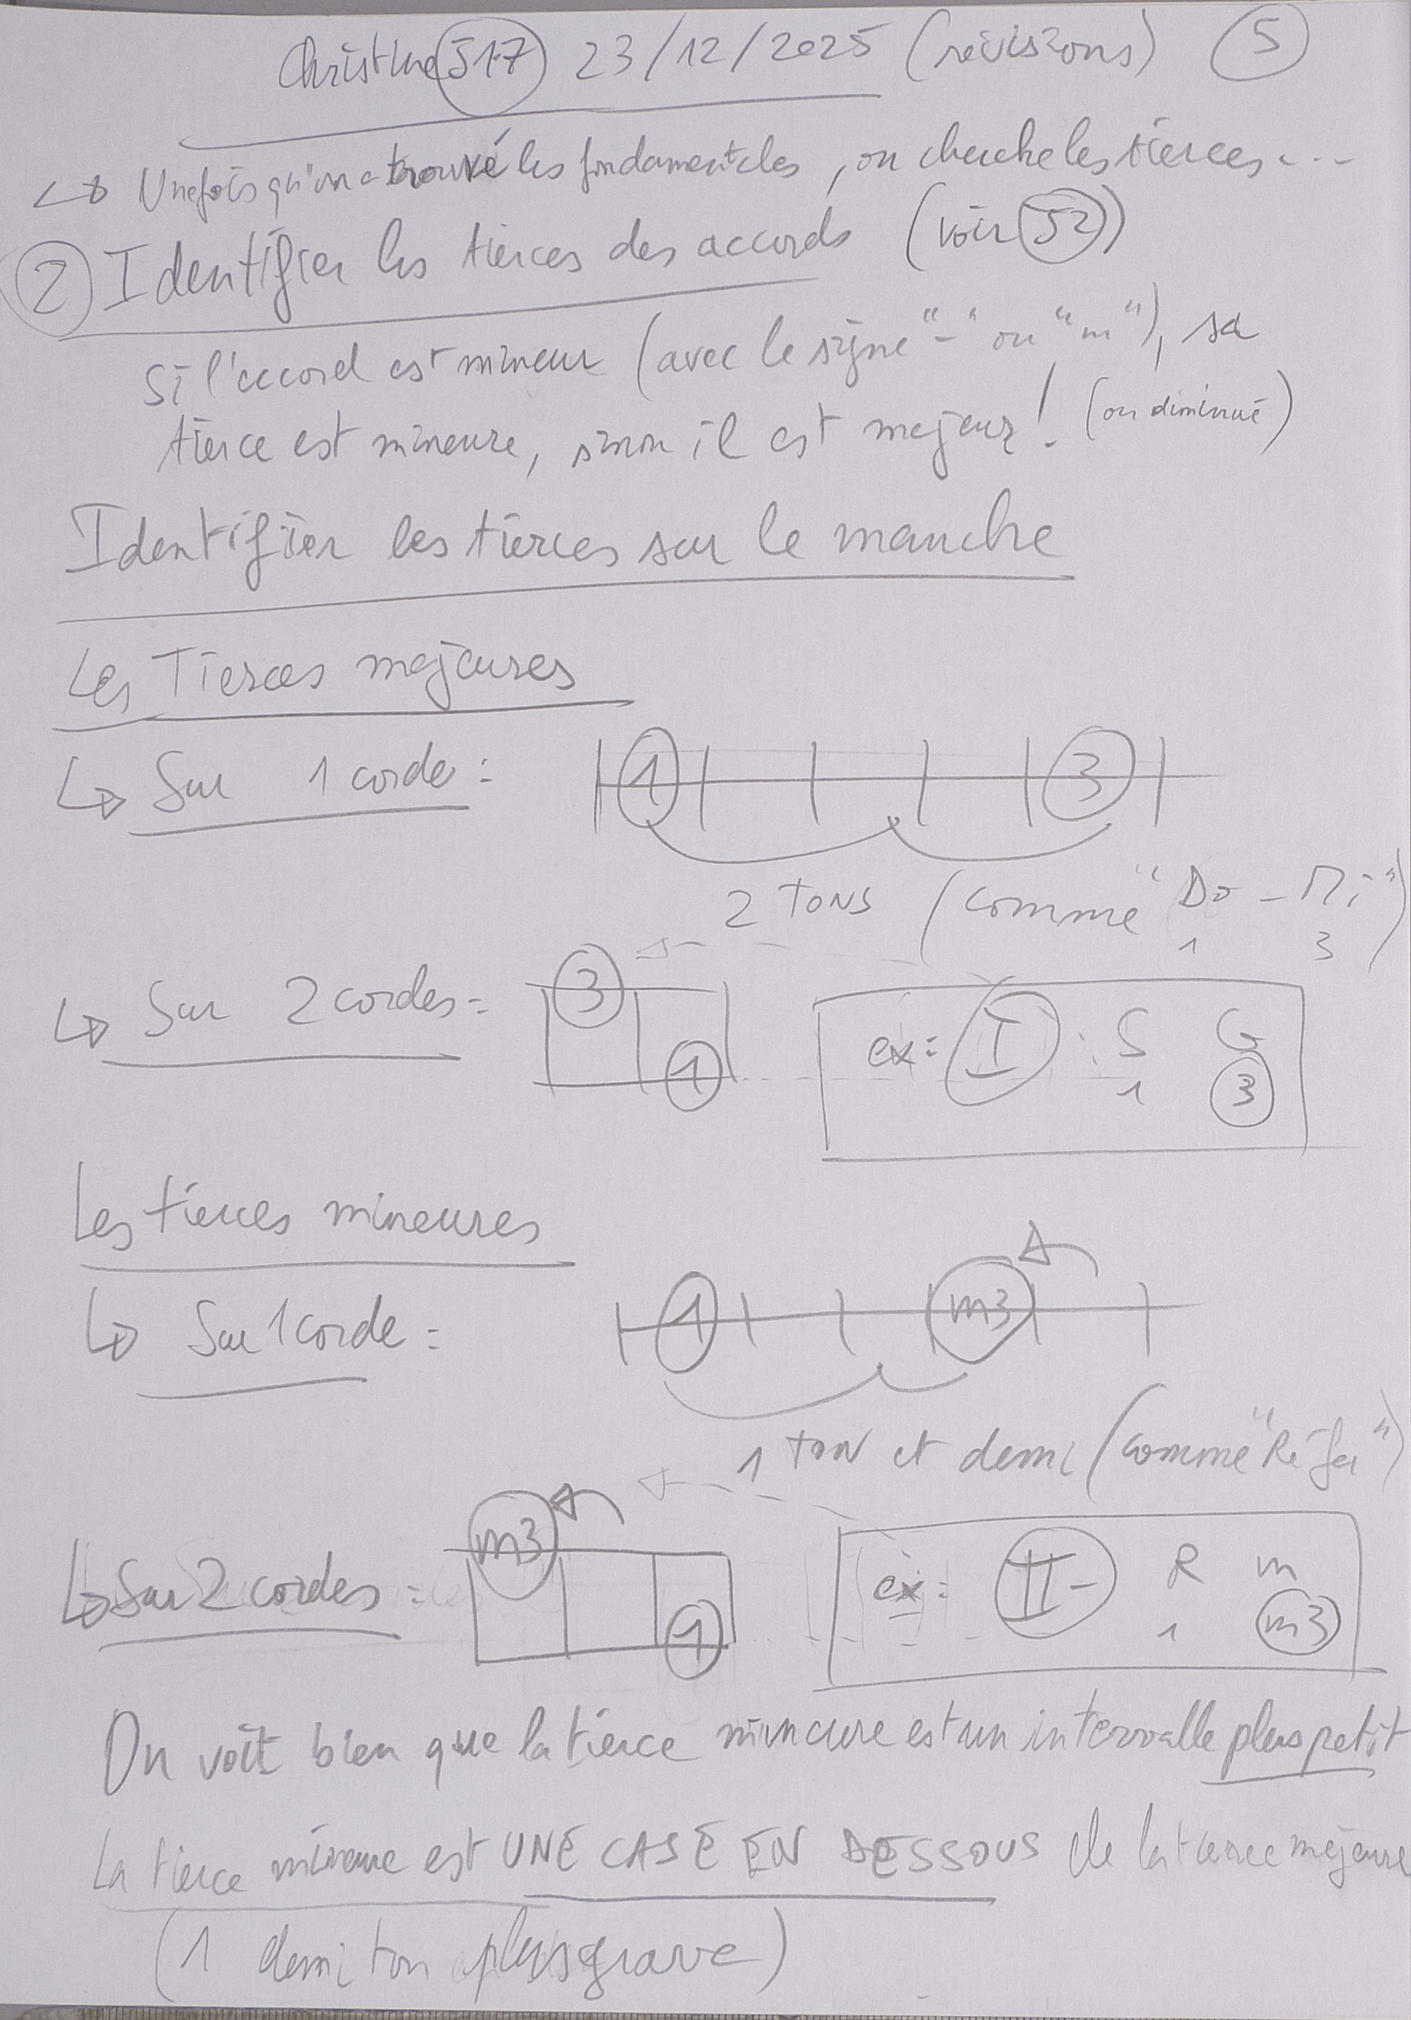 Christine 517 23/12/2025 (révisions) 5
↳ Une fois qu'on a trouvé les fondamentales, on cherche les tierces...
2 Identifier les tierces des accords (voir 52)
Si l'accord est mineur (avec le signe "-" ou "m"), sa
tierce est mineure, sinon il est majeur! (ou diminué)
Identifier les tierces sur le manche
Les Tierces majeures
↳ Sur 1 corde :
1 3
2 TONS (comme "Do - Mi")
1 3
↳ Sur 2 cordes =
3
1
ex: I S G
1 3
Les tierces mineures
↳ Sur 1 corde =
1 m3
1 ton et demi (comme "Ré fa")
↳ Sur 2 cordes =
m3
1
ex: II- R m
1 m3
On voit bien que la tierce mineure est un intervalle plus petit
La tierce mineure est UNE CASE EN DESSOUS de la tierce majeure
(1 demi ton plus grave)